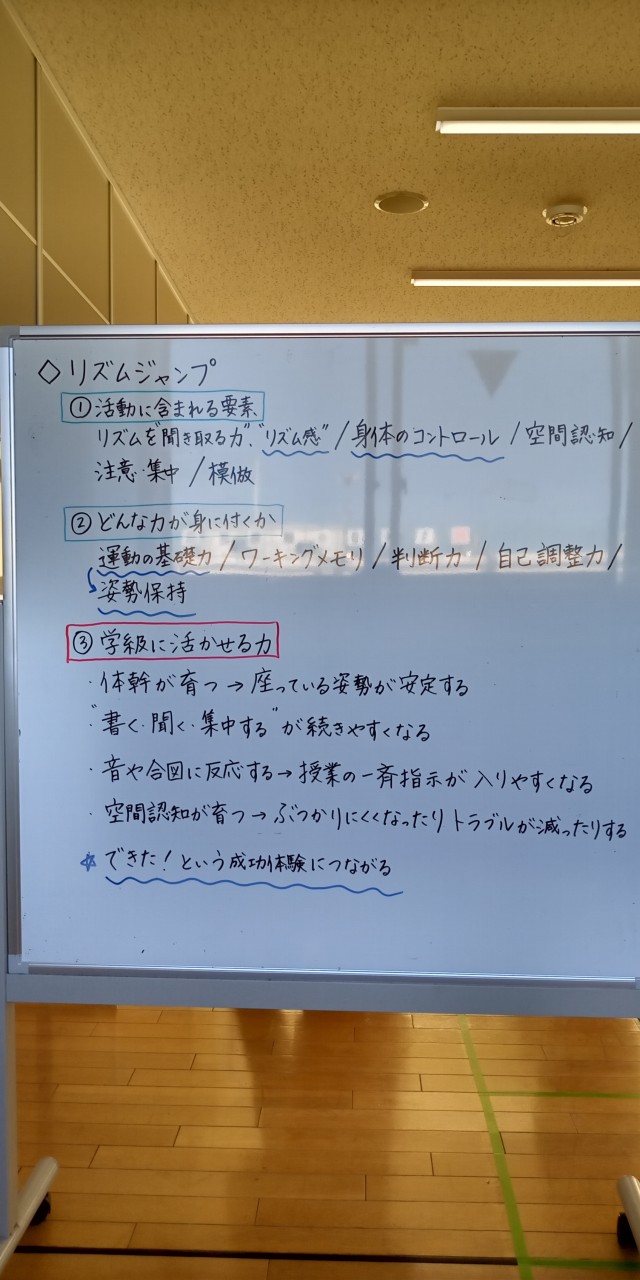 ◇リズムジャンプ
①活動に含まれる要素
リズムを"聞き取る力"、"リズム感"/身体のコントロール/空間認知/
注意・集中/模倣
②どんな力が身に付くか
運動の基礎力/ワーキングメモリ/判断力/自己調整力/
姿勢保持
③学級に活かせる力
・体幹が育つ→座っている姿勢が安定する
・"書く・聞く・集中する"が続きやすくなる
・音や合図に反応する→授業の一斉指示が入りやすくなる
・空間認知が育つ→ぶつかりにくくなったりトラブルが減ったりする
☆できた!という成功体験につながる